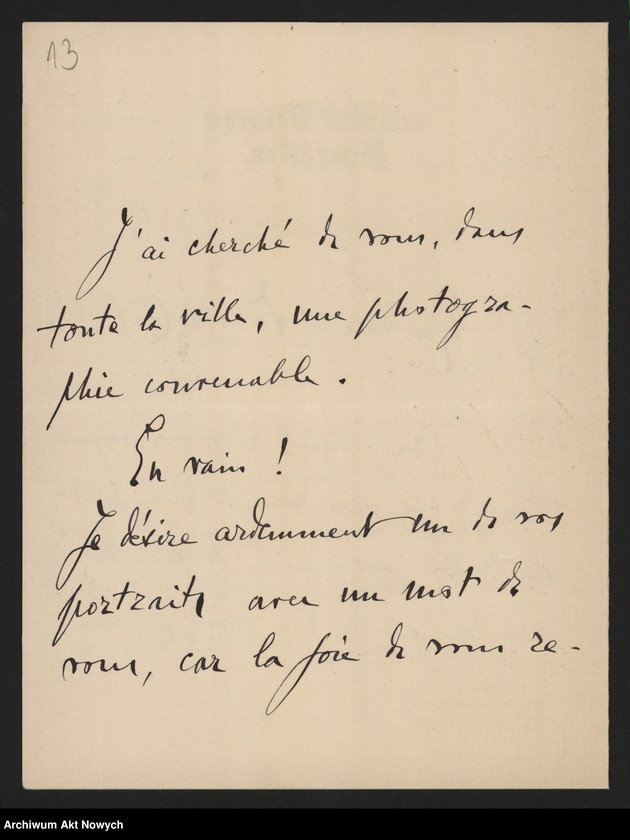 13
J'ai cherché de vous, dans
toute la ville, une photogra-
phie convenable.
En vain !
Je désire ardemment un de vos
portraits avec un mot de
vous, car la joie de vous re-
Archiwum Akt Nowych